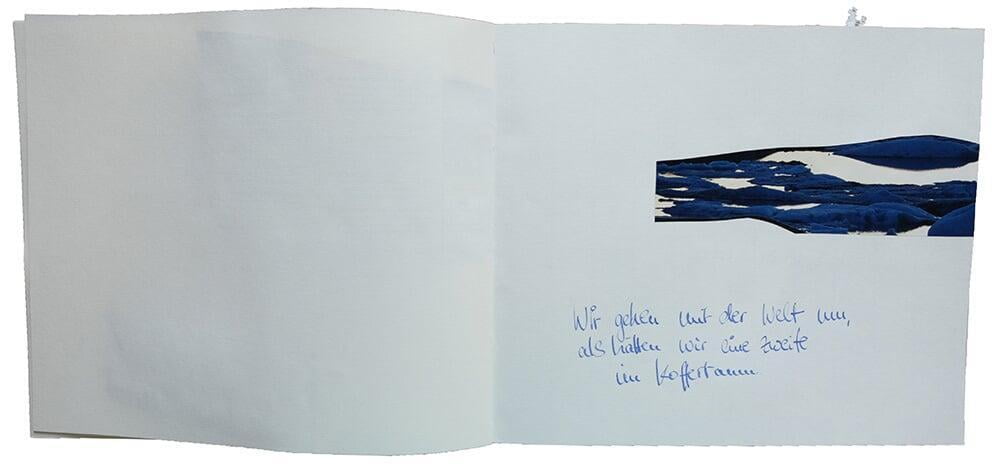 Wir gehen mit der Welt um,
als hätten wir eine zweite
im Kofferraum.